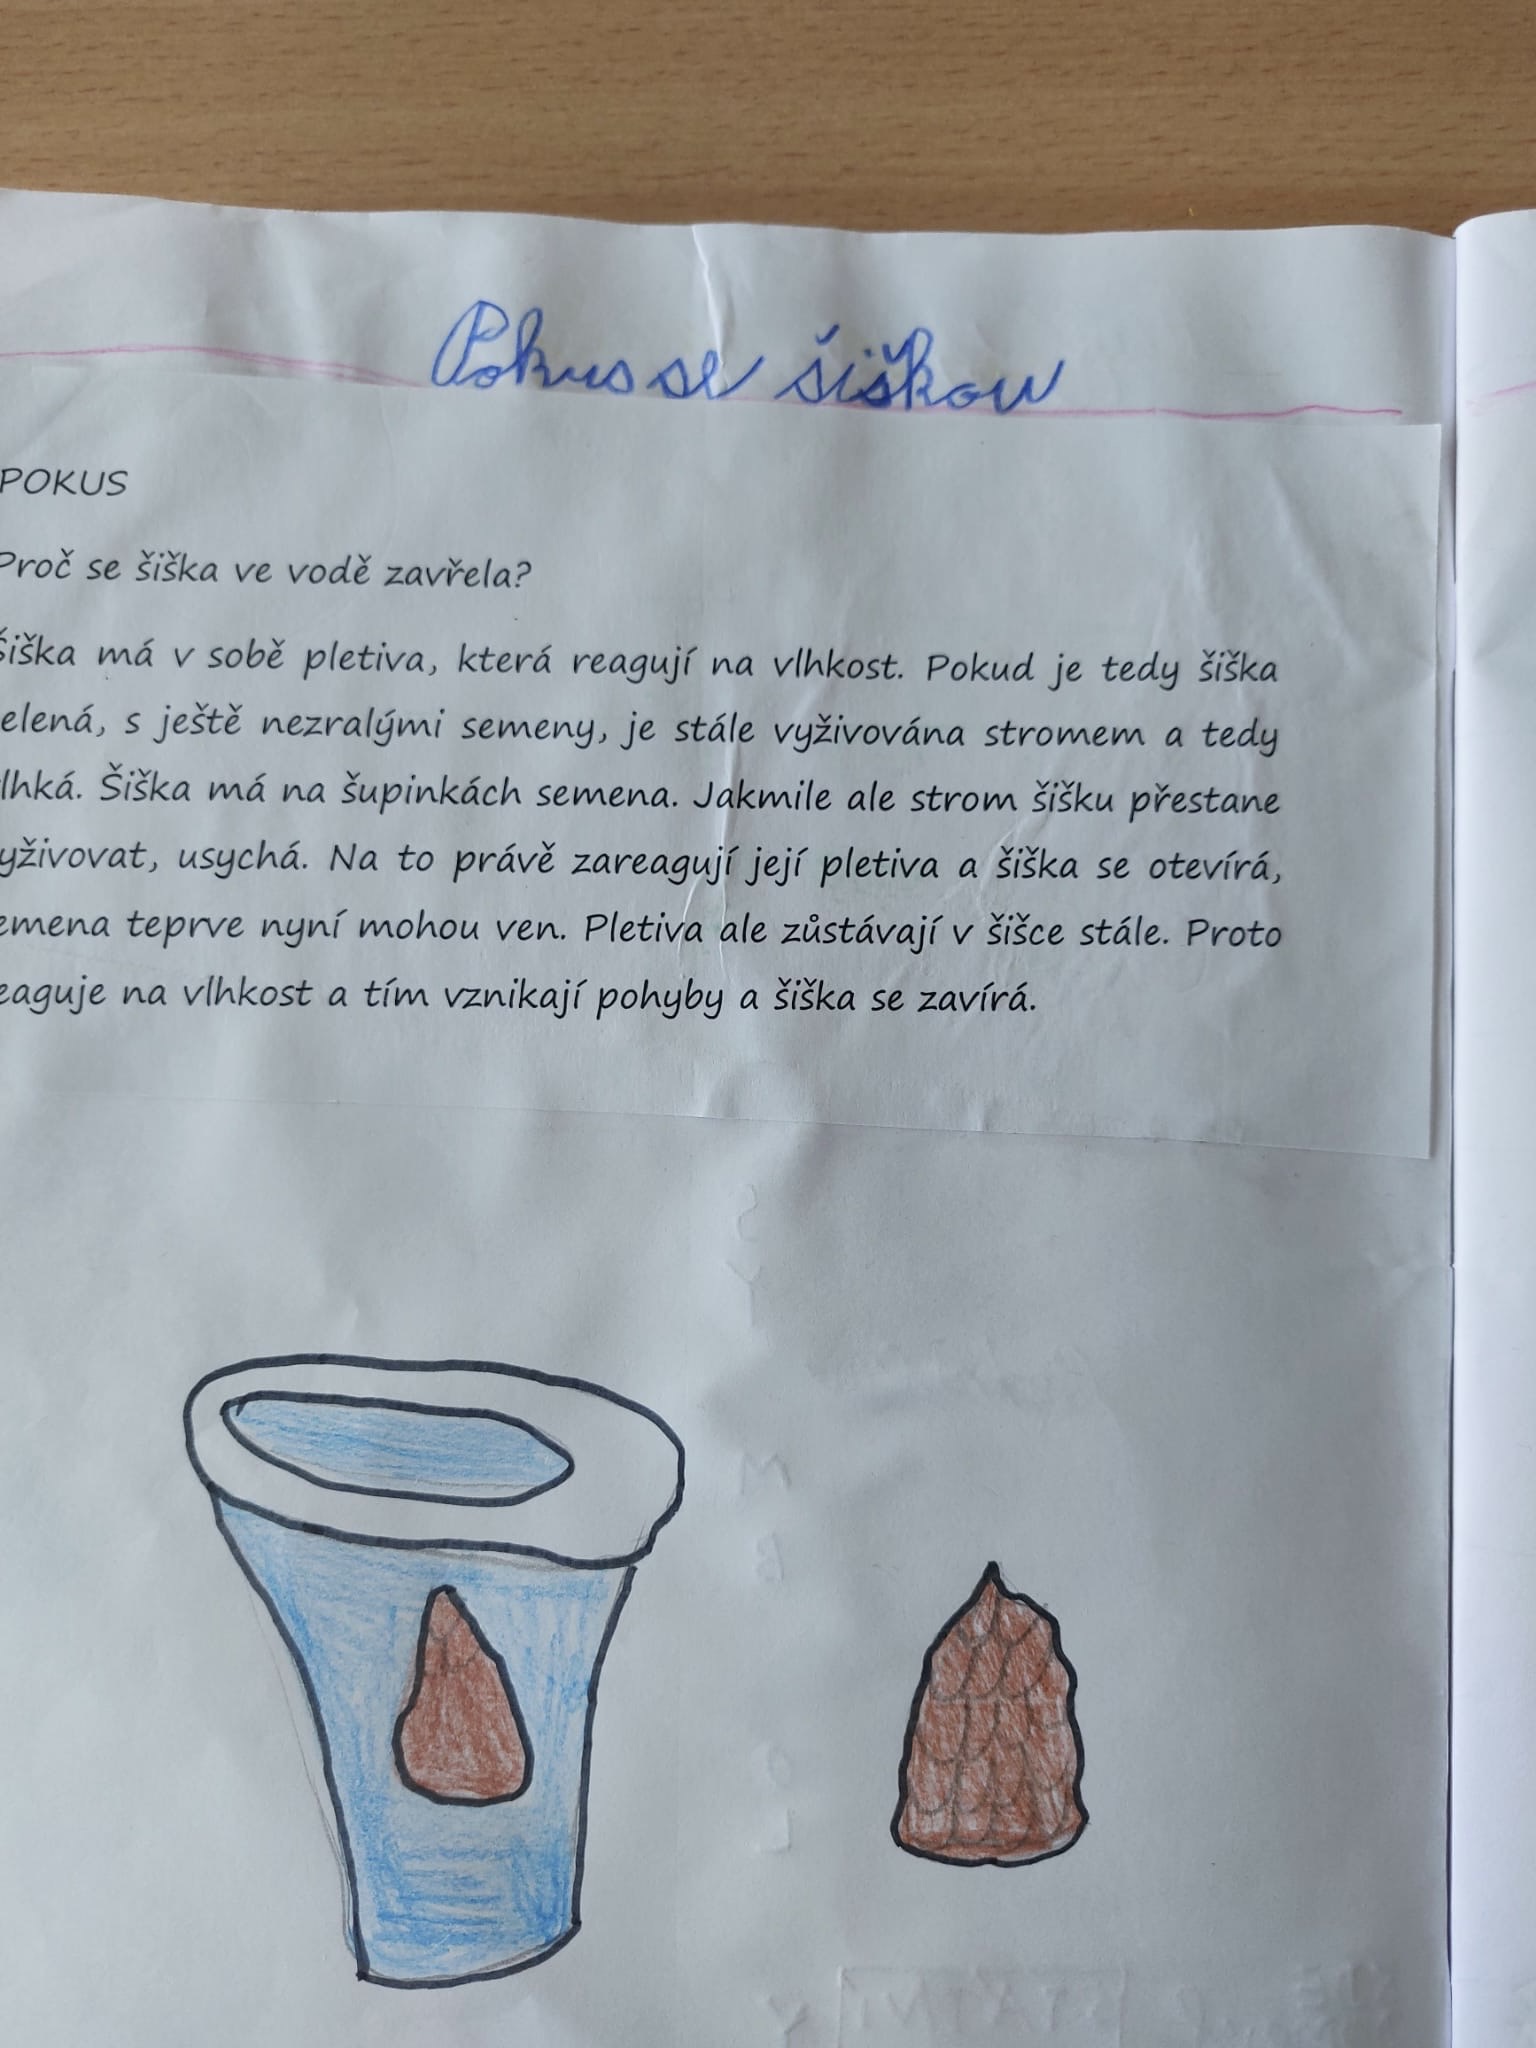 Pokus se šiškou
POKUS
Proč se šiška ve vodě zavřela?
Šiška má v sobě pletiva, která reagují na vlhkost. Pokud je tedy šiška
elená, s ještě nezralými semeny, je stále vyživována stromem a tedy
lhká. Šiška má na šupinkách semena. Jakmile ale strom šišku přestane
yživovat, usychá. Na to právě zareagují její pletiva a šiška se otevírá,
emena teprve nyní mohou ven. Pletiva ale zůstávají v šišce stále. Proto
eaguje na vlhkost a tím vznikají pohyby a šiška se zavírá.